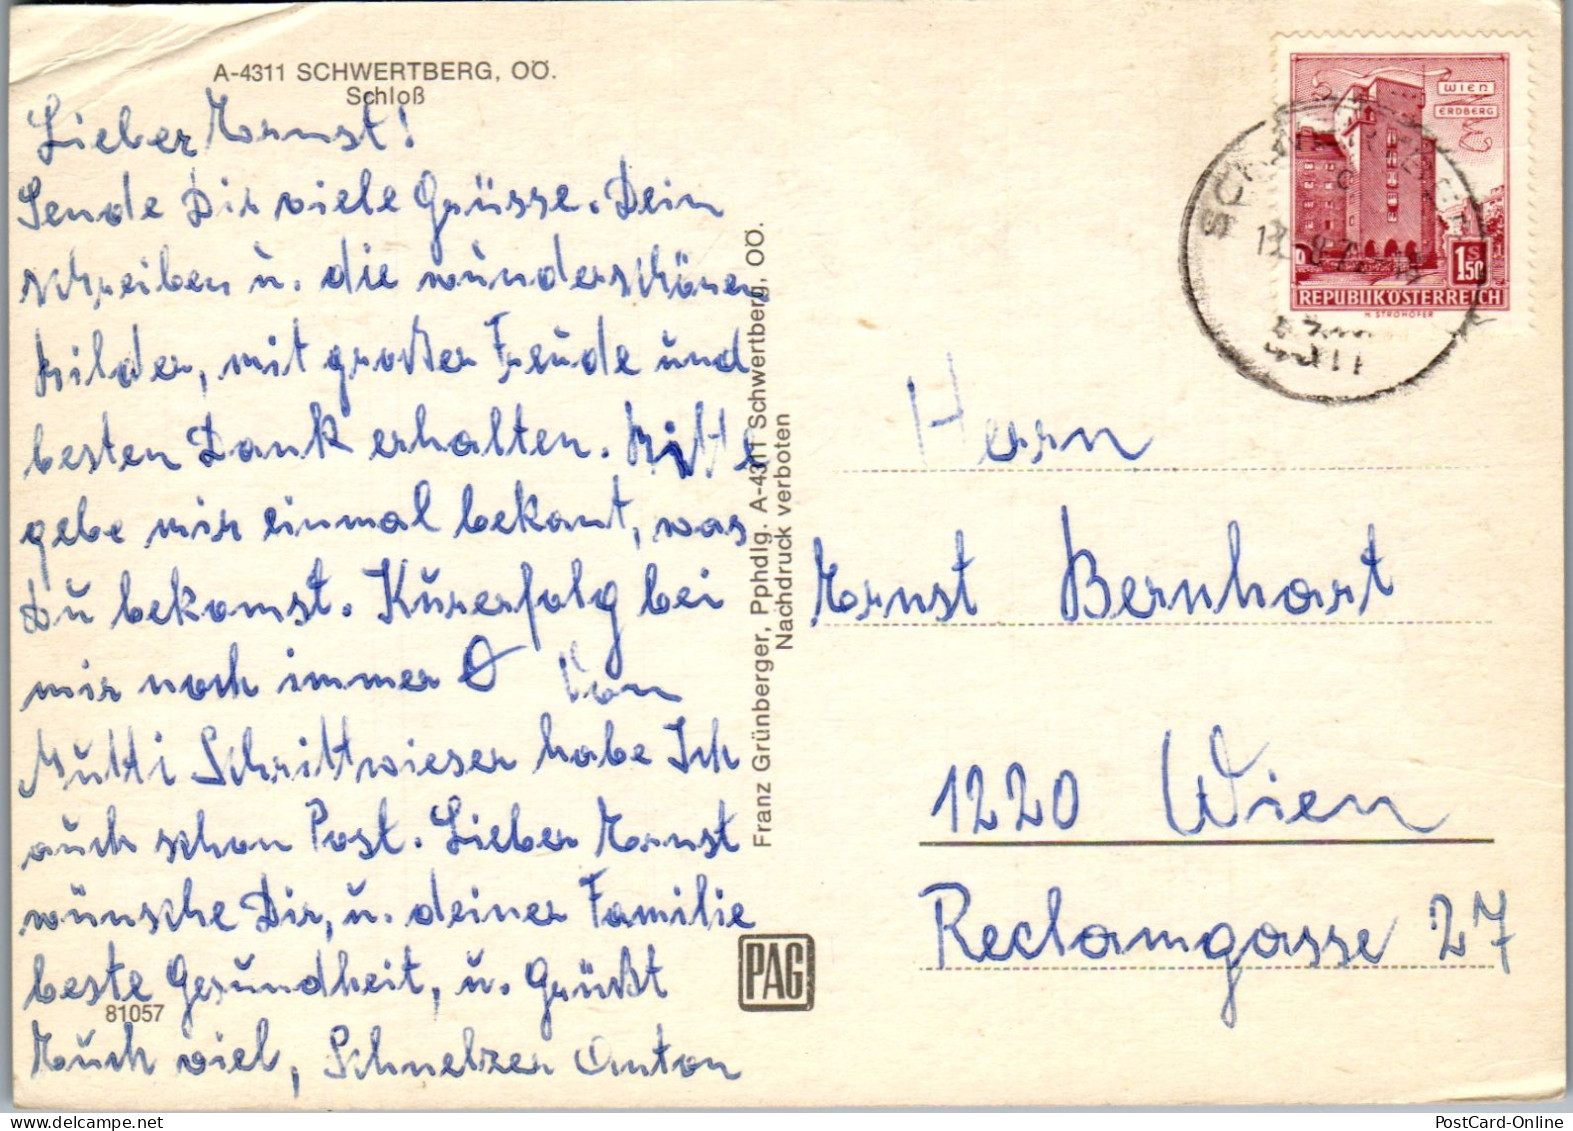 A-4311 SCHWERTBERG, OÖ.
Schloß
Lieber Ernst!
Sende Dir viele Grüsse. Dein
schreiben u. die wunderschönen
Bilder, mit großer Freude und
besten Dank erhalten. Bitte
gebe mir einmal bekant, was
Du bekomst. Kurerfolg bei
mir noch immer 0 Von
Mutti Schrittwieser habe Ich
auch schon Post. Lieber Ernst
wünsche Dir, u. deiner Familie
beste Gesundheit, u. Grüßt
Euch viel, Schnelzer Anton
81057
Franz Grünberger, Pphdlg. A-4311 Schwertberg, OÖ.
Nachdruck verboten
PAG
WIEN
ERDBERG
1S50
REPUBLIK ÖSTERREICH
H. STROHOFER
Herrn
Ernst Bernhart
1220 Wien
Reclamgasse 27
PostCard-Online